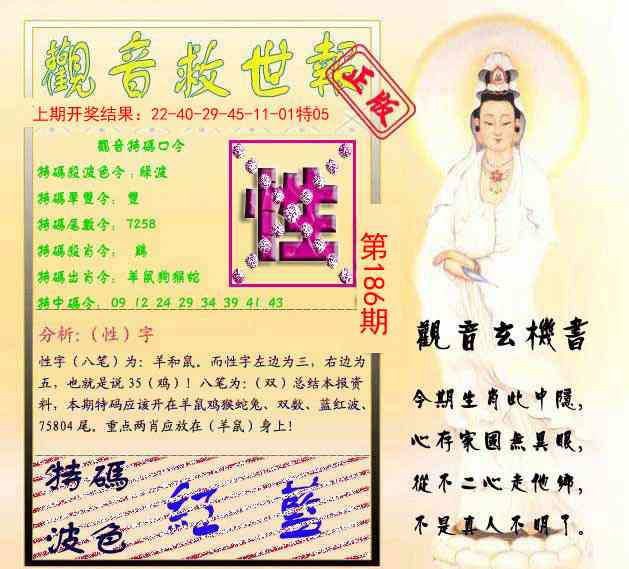 觀音救世報
正版
上期开奖结果：22-40-29-45-11-01特05
觀音特碼口令
特碼殺波色令：綠波
特碼單雙令：雙
特碼尾數令：7258
特碼殺肖令：鷄
特碼出肖令：羊鼠狗猴蛇
特中碼令：09 12 24 29 34 39 41 43
性
第186期
分析:（性）字
性字（八笔）为：羊和鼠。而性字左边为三，右边为
五，也就是说 35（鸡）！八笔为：（双）总结本报资
料，本期特码应该开在羊鼠鸡猴蛇兔、双数、蓝红波、
75804 尾。重点两肖应放在（羊鼠）身上！
特碼
波色
紅 藍
觀音玄機書
今期生肖此中隱，
心存家國無異眼，
從不二心走他鄉，
不是真人不明了。